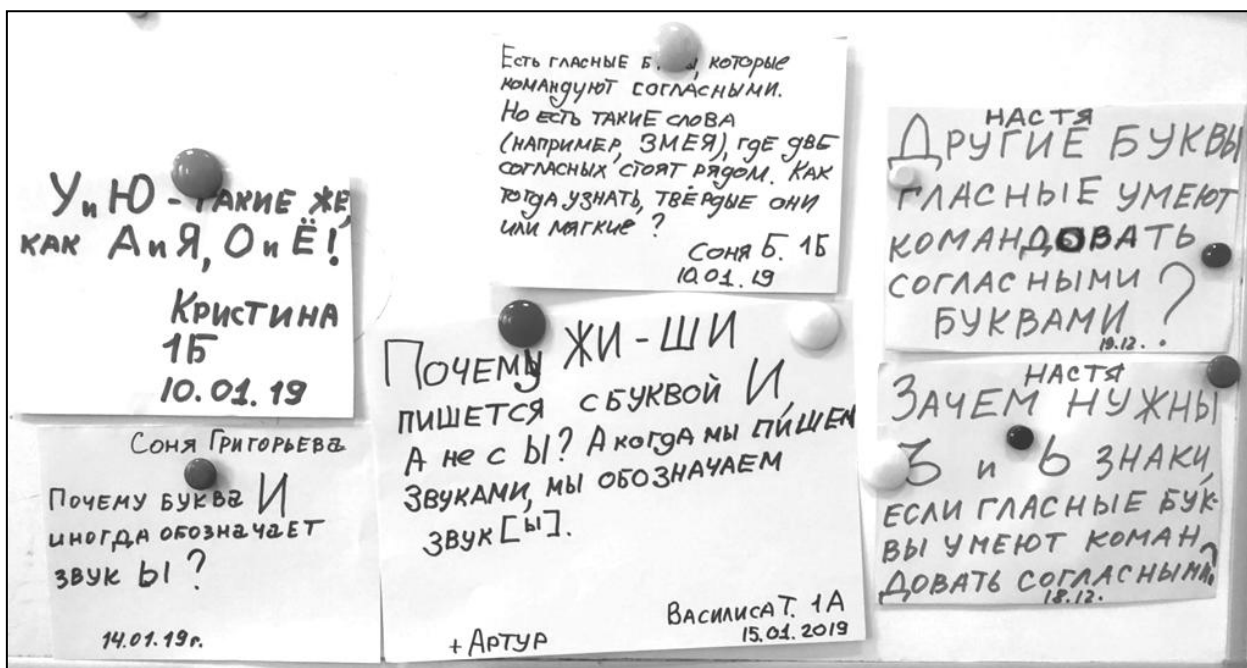 У и Ю - ТАКИЕ ЖЕ,
КАК А и Я, О и Ё!
КРИСТИНА
1Б
10.01.19
СОНЯ ГРИГОРЬЕВА
ПОЧЕМУ БУКВА И
ИНОГДА ОБОЗНАЧАЕТ
ЗВУК Ы?
14.01.19г.
ЕСТЬ ГЛАСНЫЕ КОТОРЫЕ
КОМАНДУЮТ СОГЛАСНЫМИ.
НО ЕСТЬ ТАКИЕ СЛОВА
(НАПРИМЕР, ЗМЕЯ), ГДЕ ДВЕ
СОГЛАСНЫХ СТОЯТ РЯДОМ. КАК
ТОГДА УЗНАТЬ, ТВЁРДЫЕ ОНИ
ИЛИ МЯГКИЕ?
СОНЯ Б. 1Б
10.01.19
ПОЧЕМУ ЖИ-ШИ
ПИШЕТСЯ С БУКВОЙ И,
А НЕ С Ы? А КОГДА МЫ ПИ́ШЕМ
ЗВУКАМИ, МЫ ОБОЗНАЧАЕМ
ЗВУК [Ы].
ВАСИЛИСА Т. 1А
15.01.2019
+ АРТУР
НАСТЯ
ДРУГИЕ БУКВЫ
ГЛАСНЫЕ УМЕЮТ
КОМАНДОВАТЬ
СОГЛАСНЫМИ
БУКВАМИ?
19.12.
НАСТЯ
ЗАЧЕМ НУЖНЫ
Ъ и Ь ЗНАКИ,
ЕСЛИ ГЛАСНЫЕ БУК-
ВЫ УМЕЮТ КОМАН
ДОВАТЬ СОГЛАСНЫМИ?
18.12.